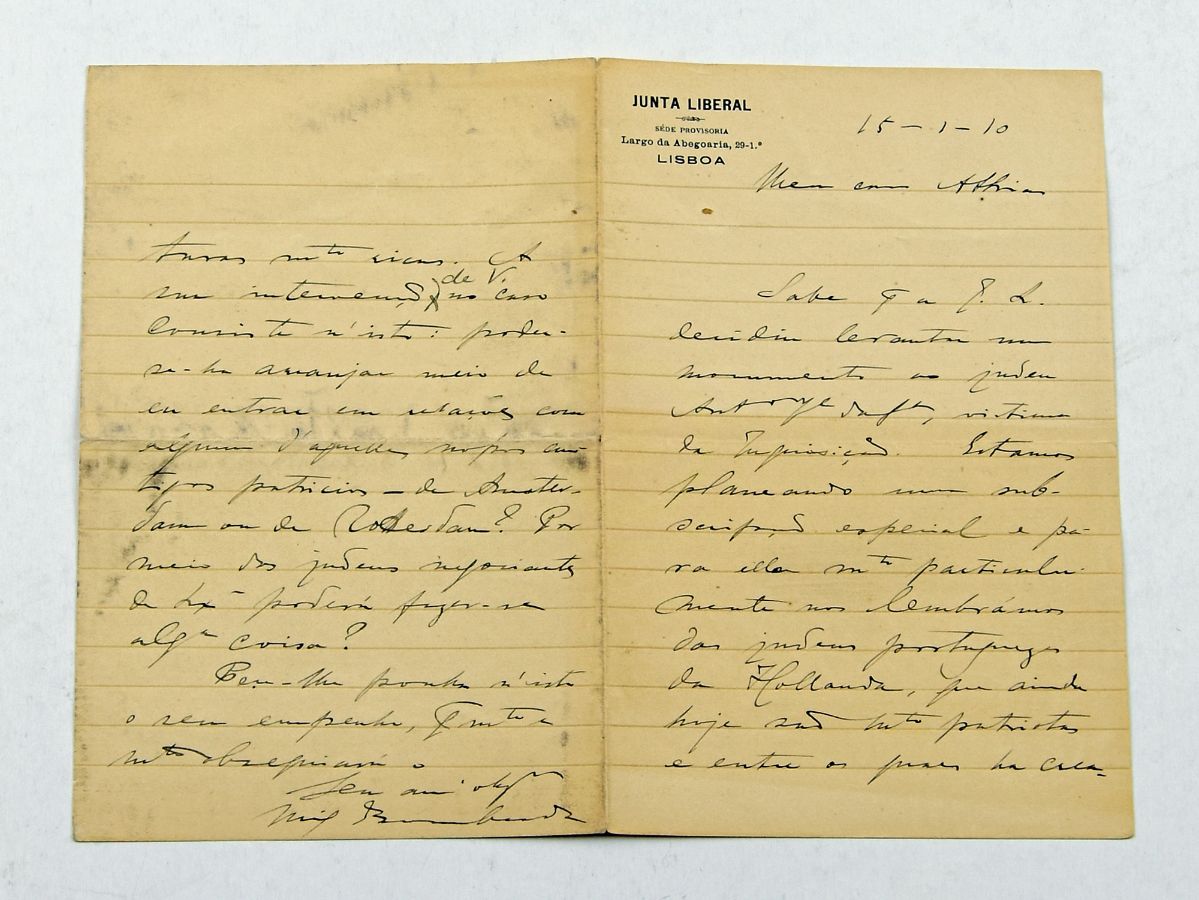 JUNTA LIBERAL
SÉDE PROVISORIA
Largo da Abegoaria, 29-1.º
LISBOA
15-1-10
Meu caro Athias
Sabe q a J. L.
decidiu levantar um
monumento ao judeu
Antº José da Sª, victima
da Inquisição. Estamos
planeando uma sub-
scripção especial e pa-
ra ella mtº particular-
mente nos lembrámos
dos judeus portuguezes
da Hollanda, que ainda
hoje são mtº patriotas
e entre os quaes ha crea-
turas mtº ricas. A
sua intervenção de V. no caso
consiste n'isto: poder-
se-ha arranjar meio de
eu entrar em relações com
algum d'aquelles nossos an-
tigos patricios – de Amster-
dam ou de Rotterdam? Por
meio dos judeus negociantes
de Lxª poderá fazer-se
algª coisa?
Peço-lhe ponha n'isto
o seu empenho, q mtº e
mtº obsequiará o
Seu amº obgº
Mig Bombarda